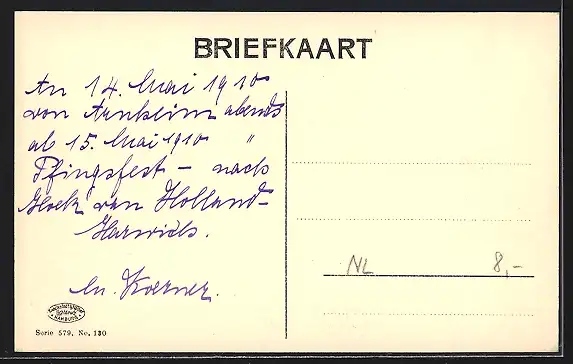 BRIEFKAART
An 14. Mai 1910
von Arnheim abends
ab 15. Mai 1910 "
Pfingsfest – nach
Hoek van Holland–
Harwich.
Koerner.
NL 8,-
HAMBURG
Serie 579, No. 130